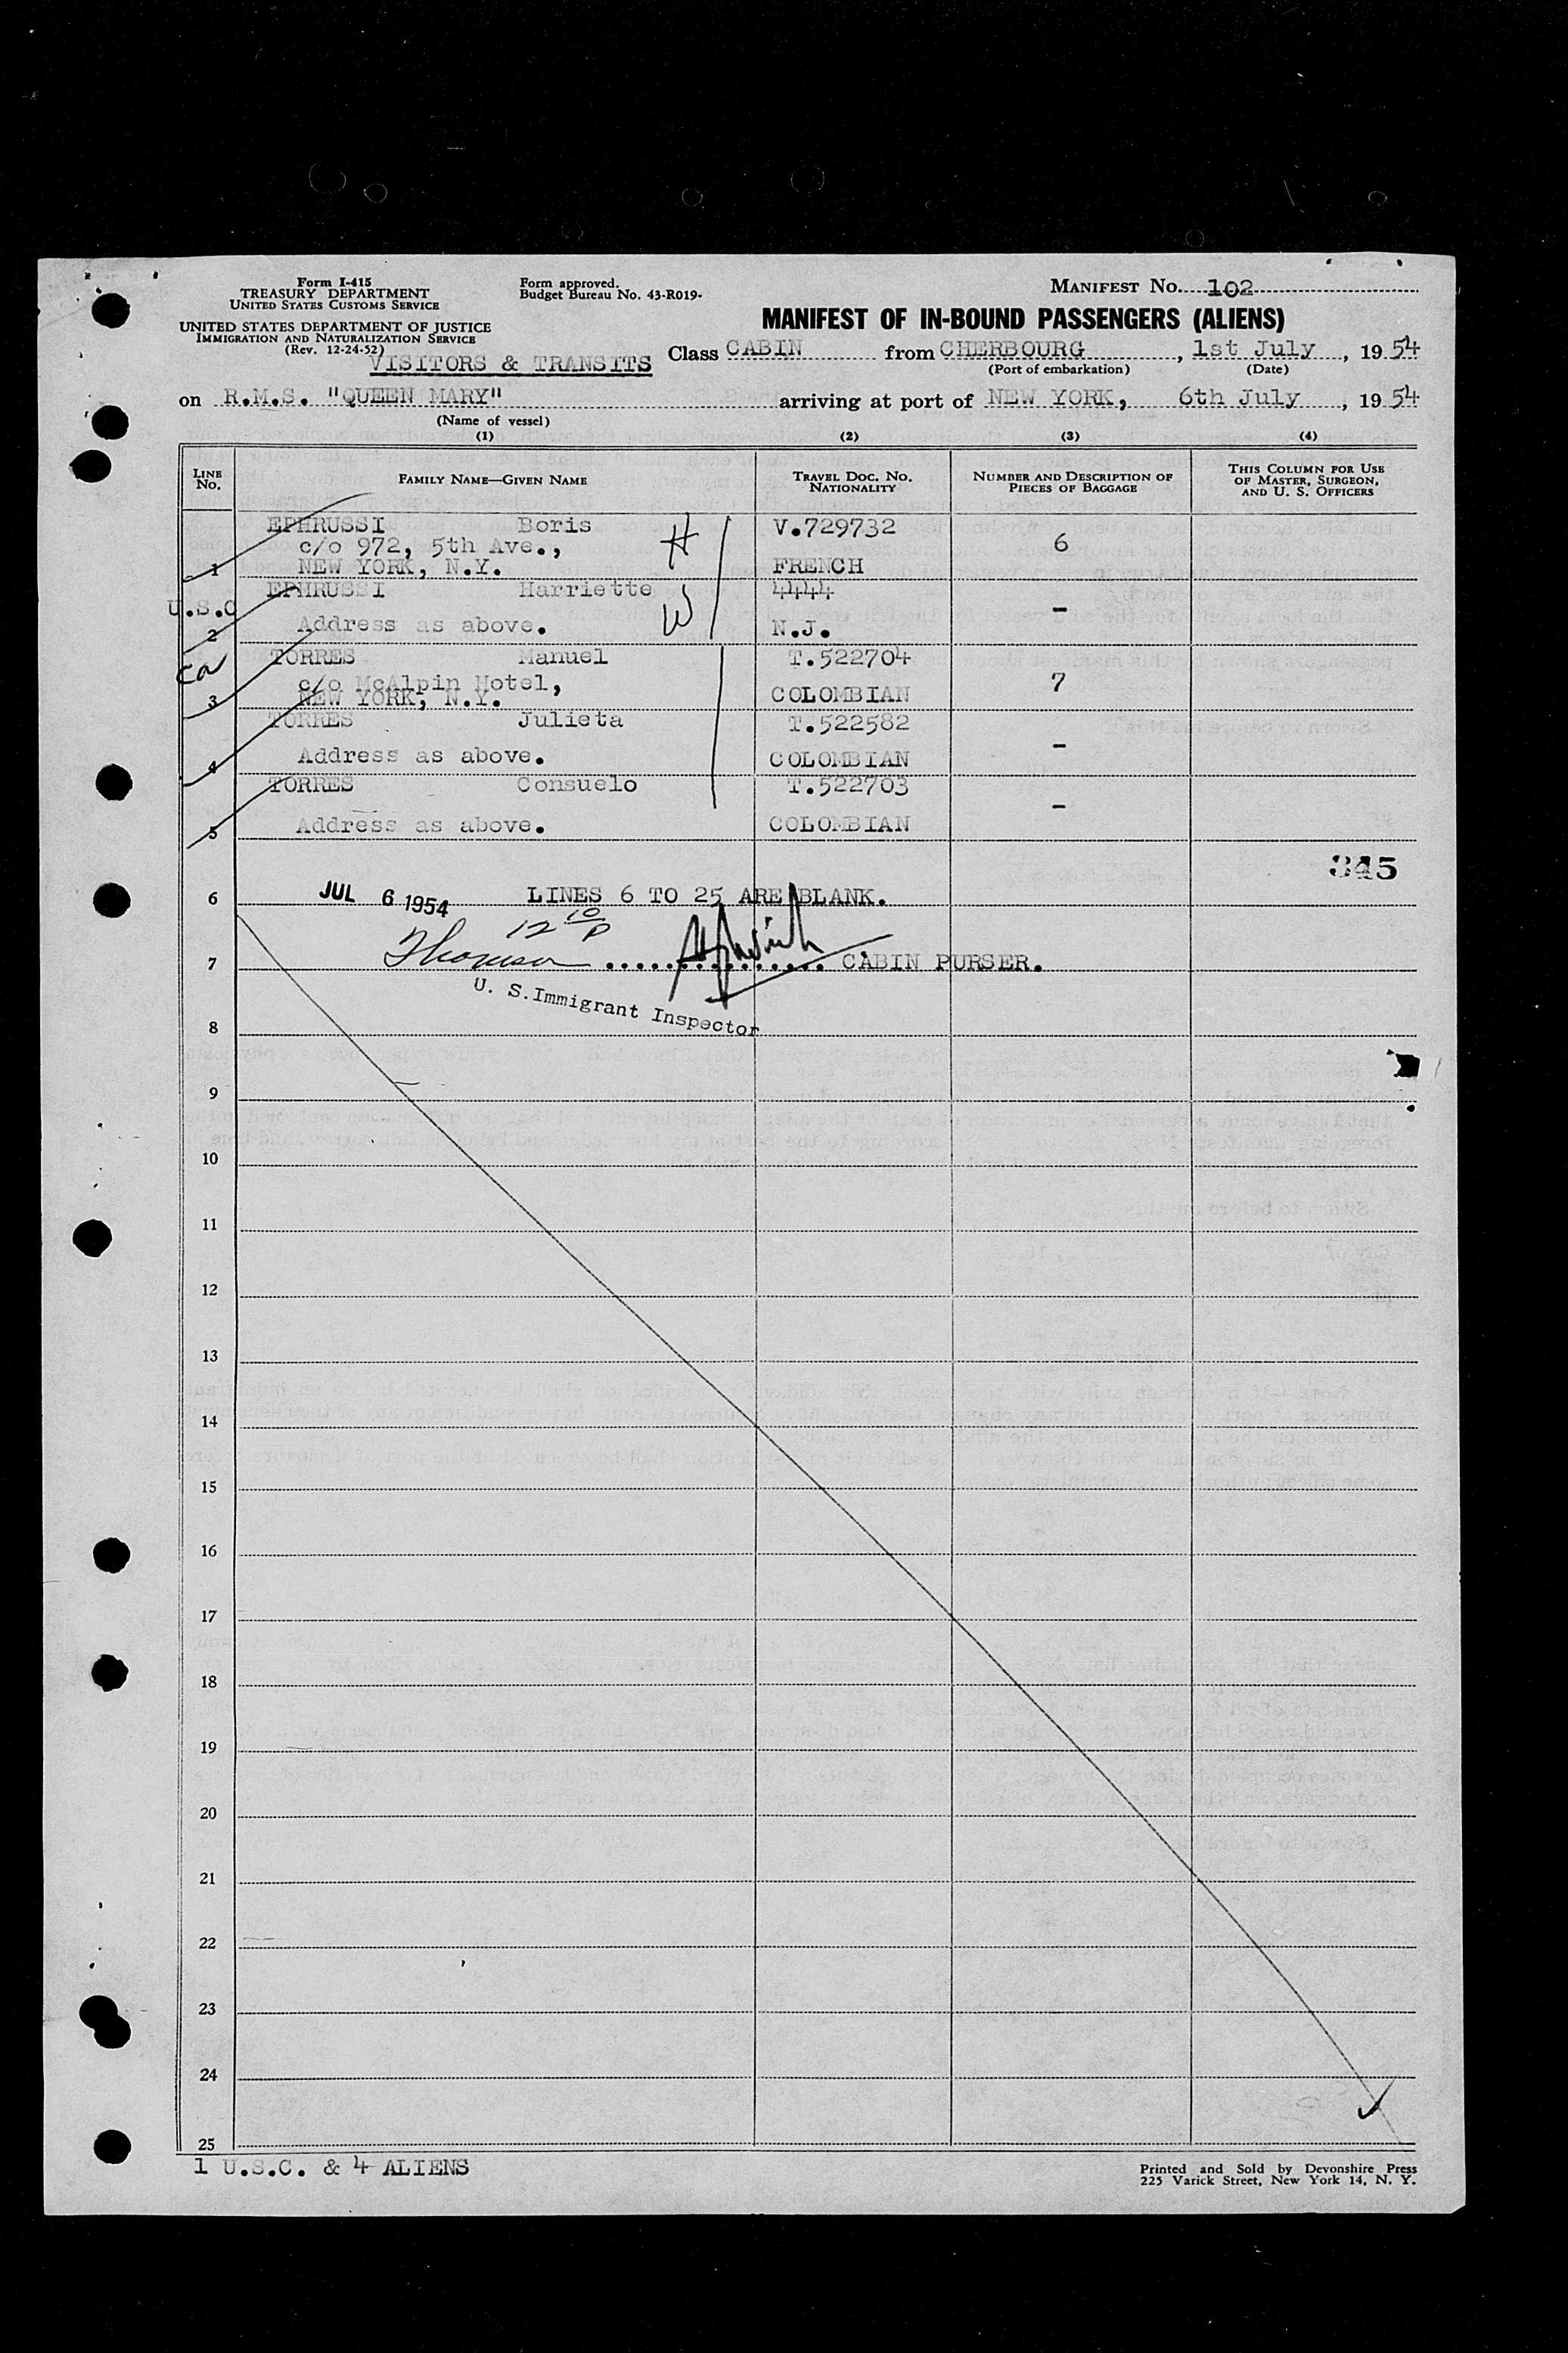 Form I-415
TREASURY DEPARTMENT
UNITED STATES CUSTOMS SERVICE
UNITED STATES DEPARTMENT OF JUSTICE
IMMIGRATION AND NATURALIZATION SERVICE
(Rev. 12-24-52)
Form approved.
Budget Bureau No. 43-R019-
MANIFEST NO. 102
MANIFEST OF IN-BOUND PASSENGERS (ALIENS)
VISITORS & TRANSITS Class CABIN from CHERBOURG, 1st July, 1954
(Port of embarkation) (Date)
on R.M.S. "QUEEN MARY" arriving at port of NEW YORK, 6th July, 1954
(Name of vessel)
(1) (2) (3) (4)
LINE NO. FAMILY NAME—GIVEN NAME TRAVEL DOC. NO. NATIONALITY NUMBER AND DESCRIPTION OF PIECES OF BAGGAGE THIS COLUMN FOR USE OF MASTER, SURGEON, AND U. S. OFFICERS
EPHRUSSI Boris H V.729732
c/o 972, 5th Ave., 6
1 NEW YORK, N.Y. FRENCH
EPHRUSSI Harriette W 4444
U.S.C -
2 Address as above. N.J.
TORRES Manuel T.522704
c/o McAlpin Hotel, 7
3 NEW YORK, N.Y. COLOMBIAN
TORRES Julieta T.522582
4 Address as above. - COLOMBIAN
TORRES Consuelo T.522703
-
5 Address as above. COLOMBIAN
345
6 JUL 6 1954 LINES 6 TO 25 ARE BLANK.
12 10 P
7 Thomson ................ CABIN PURSER.
U. S. Immigrant Inspector
8
9
10
11
12
13
14
15
16
17
18
19
20
21
22
23
24
25
1 U.S.C. & 4 ALIENS
Printed and Sold by Devonshire Press
225 Varick Street, New York 14, N. Y.